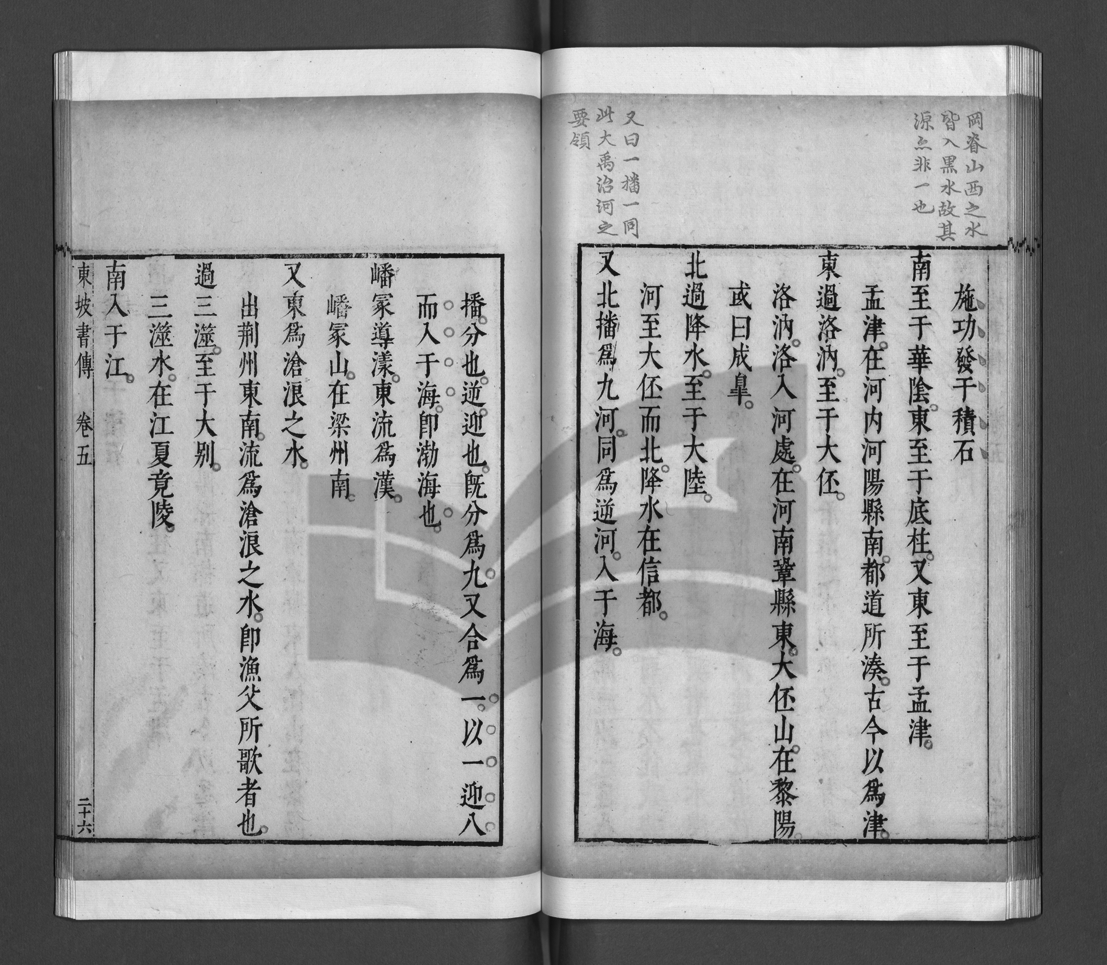 岡脊山西之水
皆入黑水故其
源亦非一也
施功發于積石
南至于華陰。東至于底柱。又東至于孟津。
孟津。在河內河陽縣南。都道所湊。古今以爲津。
東過洛汭。至于大伾。
洛汭。洛入河處。在河南鞏縣東。大伾山。在黎陽。
或曰成臯。
北過降水。至于大陸。
河至大伾而北。降水在信都。
又北播爲九河。同爲逆河。入于海。
又曰一播一同
此大禹治河之
要領
播。分也。逆。迎也。旣分爲九。又合爲一。以一迎八。
而入于海。卽渤海也。
嶓冢導漾。東流爲漢。
嶓冢山。在梁州南。
又東爲滄浪之水。
出荆州東南。流爲滄浪之水。卽漁父所歌者也。
過三澨。至于大别。
三澨水。在江夏竟陵。
南入于江。
東坡書傳 卷五 二十六